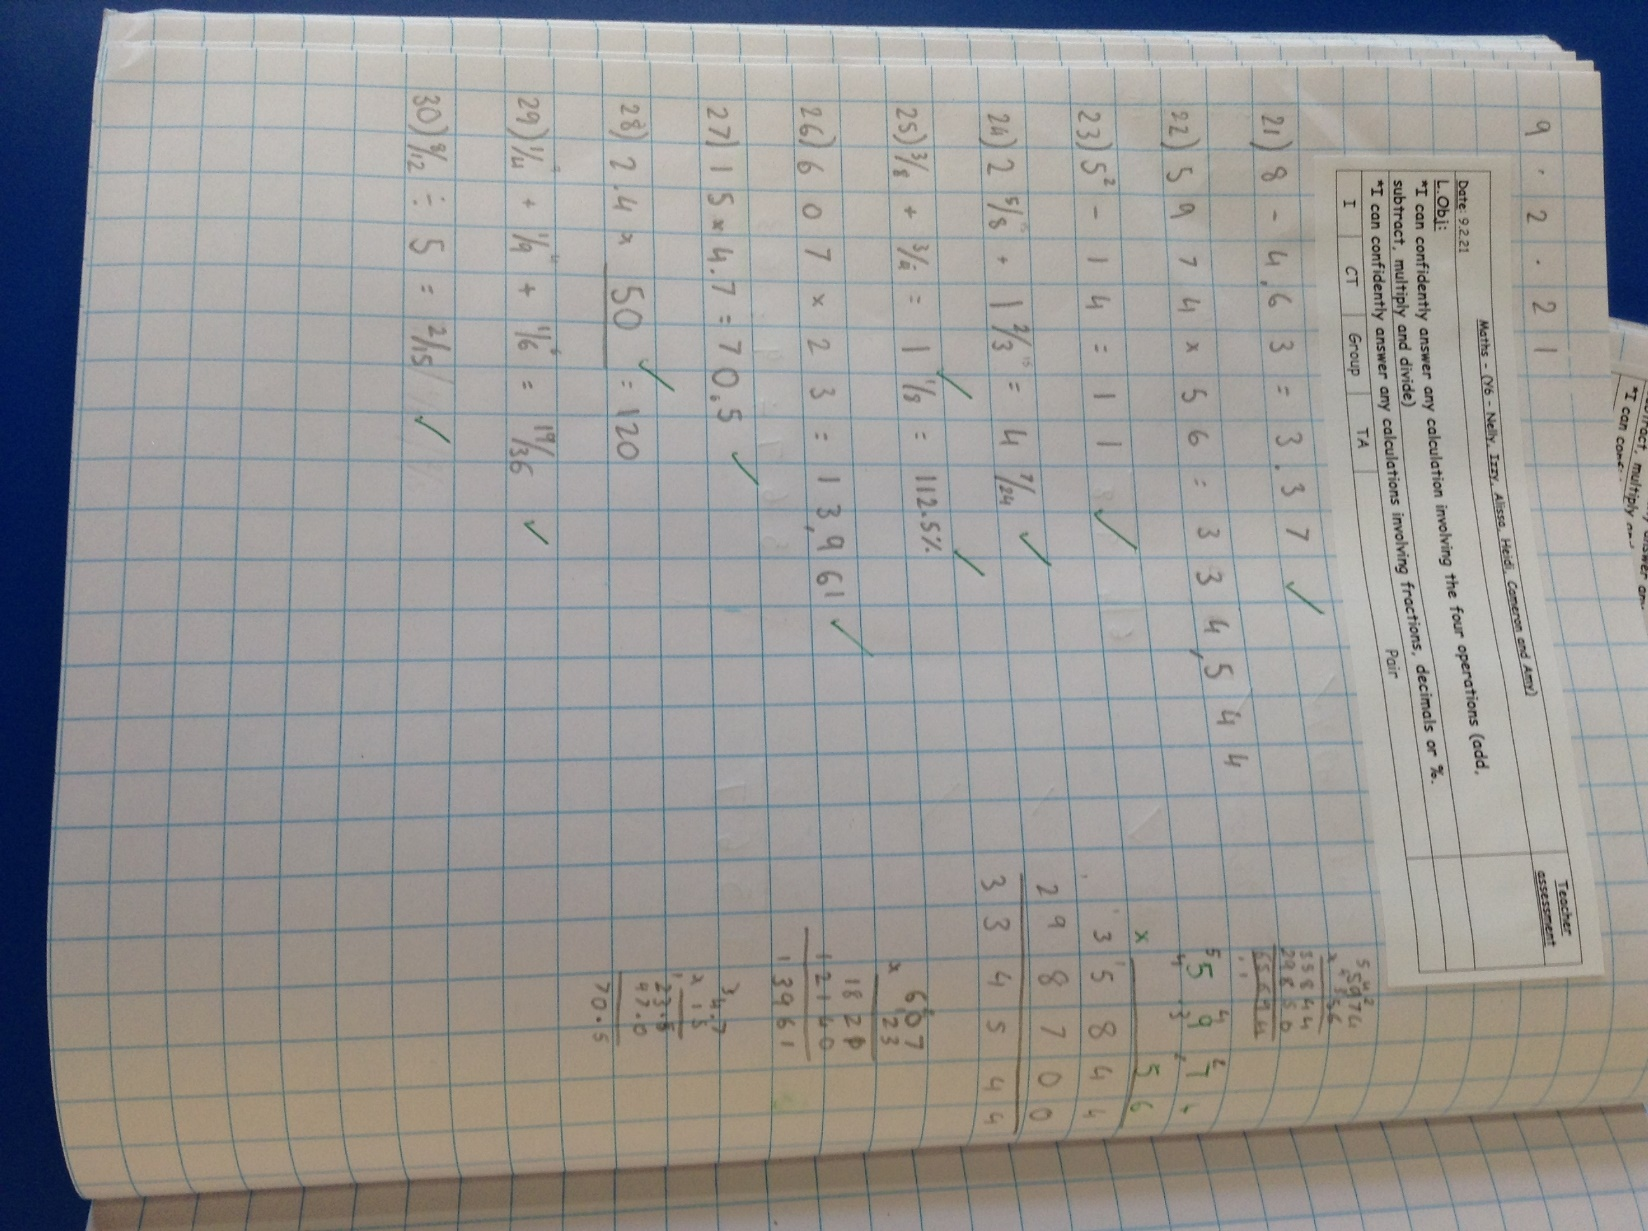 9.2.21
Maths - (Y6 - Nelly, Izzy, Alissa, Heidi, Cameron and Amy)
Teacher assessment
Date: 9.2.21
L.Obj:
*I can confidently answer any calculation involving the four operations (add,
subtract, multiply and divide)
*I can confidently answer any calculations involving fractions, decimals or %.
I CT Group TA Pair
21) 8 - 4.63 = 3.37 ✓
22) 5974 x 56 = 334,544
23) 5² - 14 = 11 ✓
24) 2 5/8 + 1 2/3 = 4 7/24 ✓
25) 3/8 + 3/4 = 1 1/8 = 112.5% ✓
26) 607 x 23 = 13,961 ✓
27) 15 x 4.7 = 70.5 ✓
28) 2.4 x 50 = 120 ✓
29) 1/4 + 1/9 + 1/6 = 19/36 ✓
30) 8/12 ÷ 5 = 2/15 ✓
5974
x 56
35844
x 56
35844
298700
334544
607
x 23
12140
13961
4.7
x 15
23.5
47.0
70.5